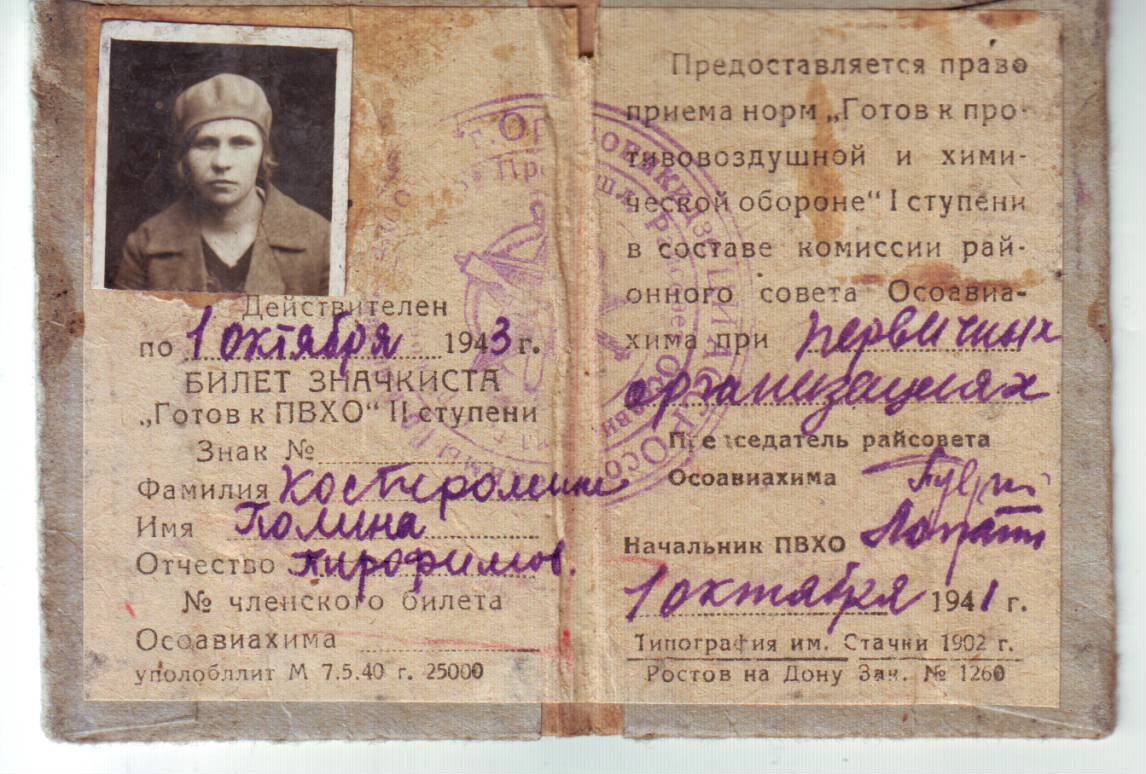 Действителен
по 1 октября 1943 г.
БИЛЕТ ЗНАЧКИСТА
„Готов к ПВХО“ II ступени
Знак №
Фамилия
Имя Полина
Отчество Тирофимов.
№ членского билета
Осоавиахима
уполобллит М 7.5.40 г. 25000
Предоставляется право
приема норм „Готов к про-
тивовоздушной и хими-
ческой обороне“ I ступени
в составе комиссии рай-
онного совета Осоавиа-
хима при первичных
организациях
Председатель райсовета
Осоавиахима
Начальник ПВХО
1 октября 1941 г.
Типография им. Стачки 1902 г.
Ростов на Дону Зак. № 1260